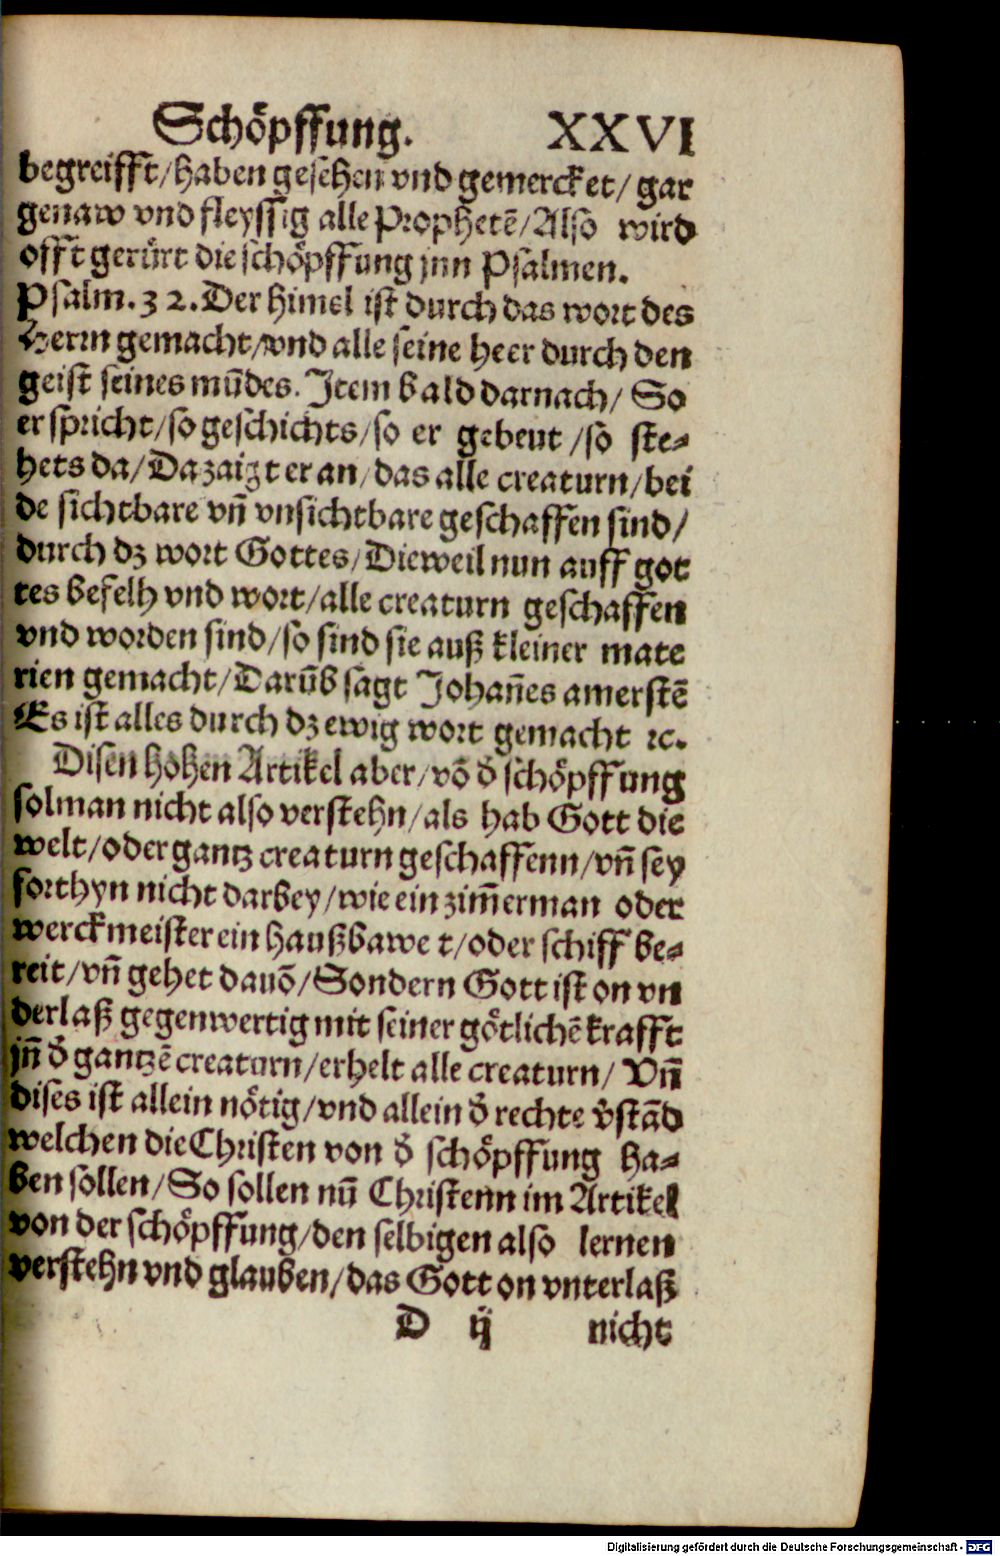 Schöpffung. XXVI
begreifft/haben gesehen vnd gemercket/ gar
genaw vnd fleyssig alle Prophetē/Also wird
offt gerürt die schöpffung jnn Psalmen.
Psalm. 32. Der himel ist durch das wort des
Herrn gemacht/vnd alle seine heer durch den
geist seines mūdes. Item bald darnach/ So
er spricht/so geschichts/so er gebeut /so ste-
hets da/Da zaigt er an/das alle creaturn/bei
de sichtbare vn̄ vnsichtbare geschaffen sind/
durch dz wort Gottes/Dieweil nun auff got
tes befelh vnd wort/alle creaturn geschaffen
vnd worden sind/so sind sie auß kleiner mate
rien gemacht/Darūb sagt Johan̄es am erstē
Es ist alles durch dz ewig wort gemacht ꝛc.
Disen hohen Artikel aber/vō d̓ schöpffung
sol man nicht also verstehn/als hab Gott die
welt/oder gantz creaturn geschaffenn/vn̄ sey
forthyn nicht darbey/wie ein zim̄erman oder
werckmeister ein hauß bawet/oder schiff be-
reit/vn̄ gehet dauō/Sondern Gott ist on vn
derlaß gegenwertig mit seiner götlichē krafft
jn̄ d̓ gantzē creaturn/erhelt alle creaturn/ Vn̄
dises ist allein nötig/vnd allein d̓ rechte v̓stād
welchen die Christen von d̓ schöpffung ha-
ben sollen/So sollen nū Christenn im Artikel
von der schöpffung/den selbigen also lernen
verstehn vnd glauben/das Gott on vnterlaß
D ij nicht
Digitalisierung gefördert durch die Deutsche Forschungsgemeinschaft - DFG